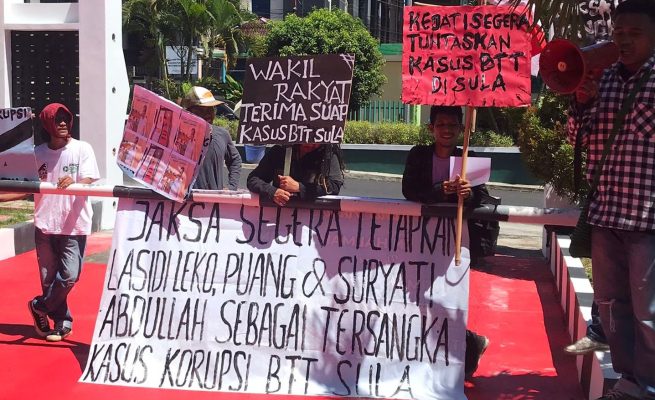 KEJATI SEGERA
TUNTASKAN
KASUS BTT
DI SULA
WAKIL
RAKYAT
TERIMA SUAP
KASUS BTT SULA
JAKSA SEGERA TETAPKAN
LASIDI LEKO, PUANG & SURYATI
ABDULLAH SEBAGAI TERSANGKA
KASUS KORUPSI BTT SULA